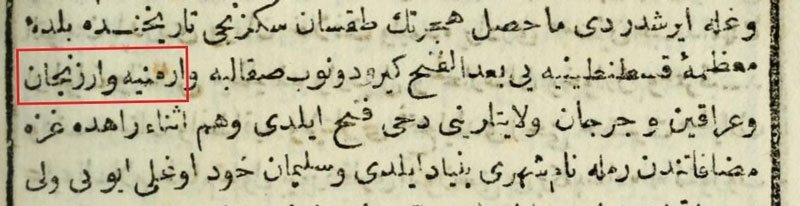 وغله ايرشدردى ماحصل هجرتك طقسان سكزنجى تاريخنده بلدهٔ
معظمهٔ قسطنطينيه يى بعد الفتح كيرو دونوب صقالبه و ارمنيه وارزنجان
وعراقين و جرجان ولايتلرينى دخى فتح ايلدى وهم اثناء راهده غزه
مضافاتندن رمله نام شهرى بنياد ايلدى وسليمان خود اوغلى ايوبى ولى